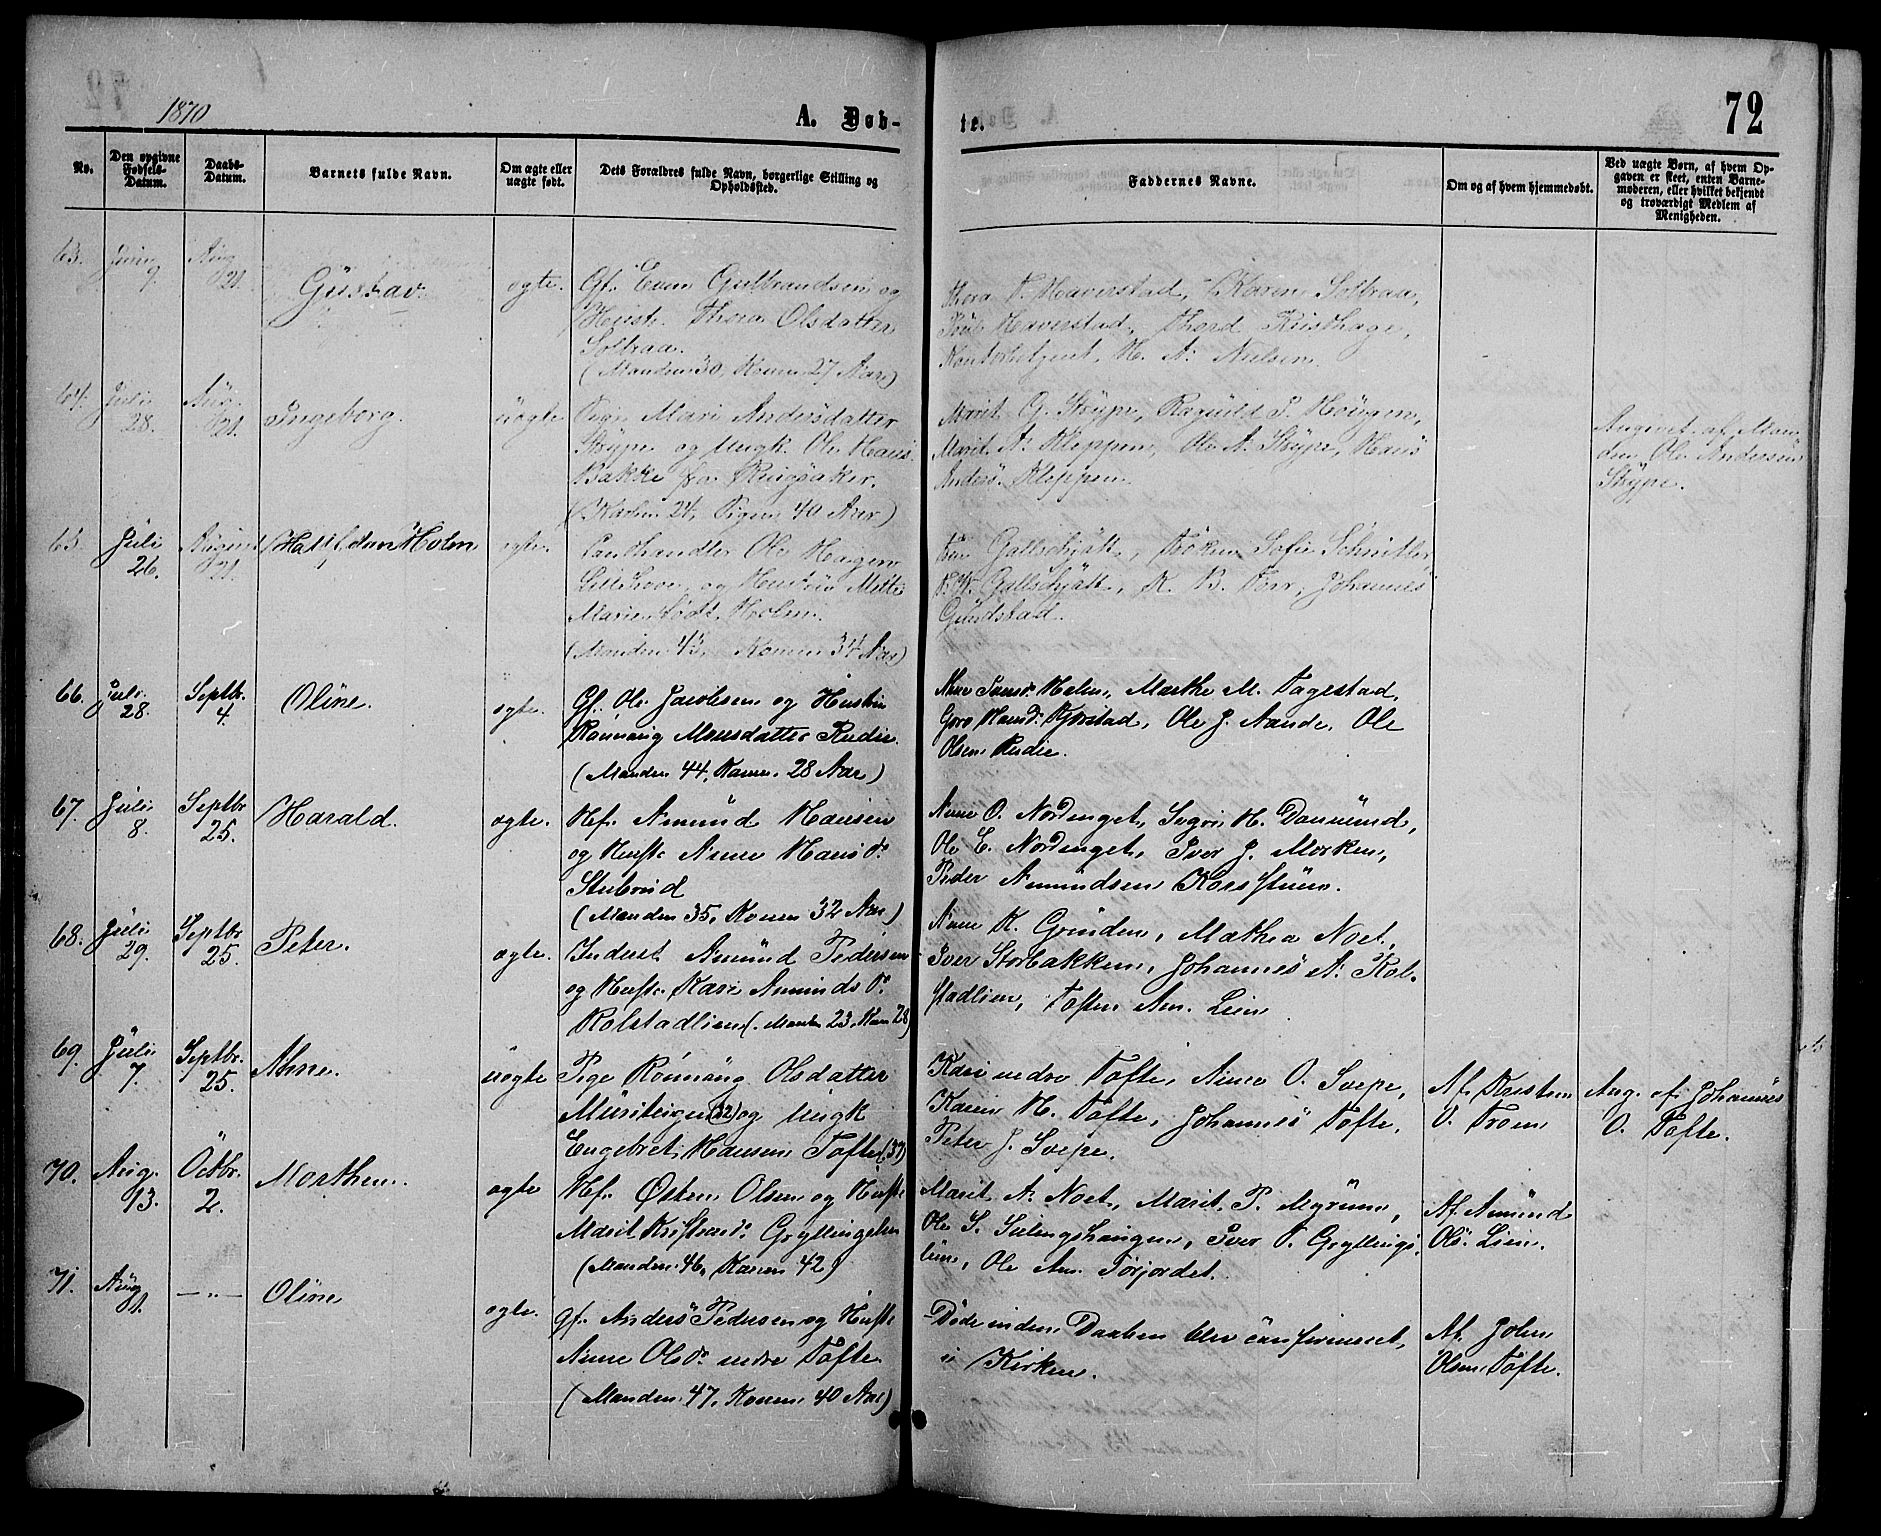 1870
A. Døb-
te.
72
No.
Den opgivne Fødsels-Datum.
Daabs-Datum.
Barnets fulde Navn.
Om ægte eller uægte født.
Dets Forældres fulde Navn, borgerlige Stilling og Opholdssted.
Faddernes Navne.
Om og af hvem hjemmedøbt.
Ved uægte Børn, af hvem Opgaven er skeet, enten Barnemoderen, eller hvilket bekjendt og troværdigt Medlem af Menigheden.
63. Juni 9. Aug 21. Gustav ægte. Gf. Even Gulbrandsen og
Hustr. Thora Olsdatter
Solbraa.
(Manden 30, Konen 27 Aar)
Thora P. Haverstad, Karen Solbraa,
Haverstad, Thord
H. A. Nielsen.
64. Juli 28. Aug. 21. Ingeborg. uægte Pige Mari Andersdatter
Strype og Ungk. Ole Hans.
Bakke fra Ringsaker.
(Karlen 24, Pigen 40 Aar)
Marit G. Strype, Ragnild P. Haugen,
Marit A. Kleppen, Ole A. Strype, Hans
Anders. Kleppen.
Angivet af Man-
den Ole Andersen
Strype.
65. Juli 26. August 21. Halfdan Holm ægte. Landhandler Ole Hagen
og Hustru Mette
Marie født Holm.
(Manden 43, Konen 34 Aar)
Gallschjøtt, Frøken Sofie Schnitler,
Gallschjøtt, K. B. Johannes
Gundstad.
66. Juli 28. Septbr. 4 Oline. ægte. Gf. Ole Jacobsen og Hustru
Rønnaug Monsdatter Rudie.
(Manden 44, Konen 28 Aar)
Holen, Marthe M. Tagestad,
Gro Hansd. Kjørstad, Ole J. Aande, Ole
Olsen Rudie.
67. Juli 8. Septbr 25. Harald. ægte. Hf. Amund Hansen
og Hust. Anne Hansd.
Stubrud
(Manden 35, Konen 32 Aar)
Anne O. Nordenget, H. Dammund,
Ole E. Nordenget, Iver J. Morken,
Peder Amundsen
68. Juli 29. Septbr 25. Peter. ægte. Inderst Amund Pedersen
og Hust. Kari Amunds d.
Kolstadlien (Manden 23, Konen 28)
Anne K. Grinden, Mathea Noet,
Iver Storbakken, Johannes A. Kol-
stadlien, Tosten Am. Lien
69. Juli 7. Septbr. 25. Anne. uægte Pige Rønnaug Olsdatter
(22) og Ungk
Engebret Hansen Tofte (37)
Kari nedre Tofte, Anne O. Svepe,
Karen H. Tofte, Johannes Tofte,
Peter J. Svepe.
Af Karsten
O. From
Ang. af Johannes
O. Tofte.
70. Aug. 13. Octbr. 2. Morthen. ægte Hf. Østen Olsen og Hust.
Marit Gryllingslien
(Manden 46, Konen 42)
Marit A. Noet, Marit P. Myrum,
Ole S. Iver P. Gryllings-
lien, Ole Am. Torjordet.
Af Amund
Ols. Lien.
71. Aug — " — Oline ægte. Gf. Anders Pedersen og Hust.
Anne Olsd. nedre Tofte
(Manden 47, Konen 40 Aar)
Døde inden Daaben blev confirmeret,
i Kirken.
Af John
Olsen Tofte.